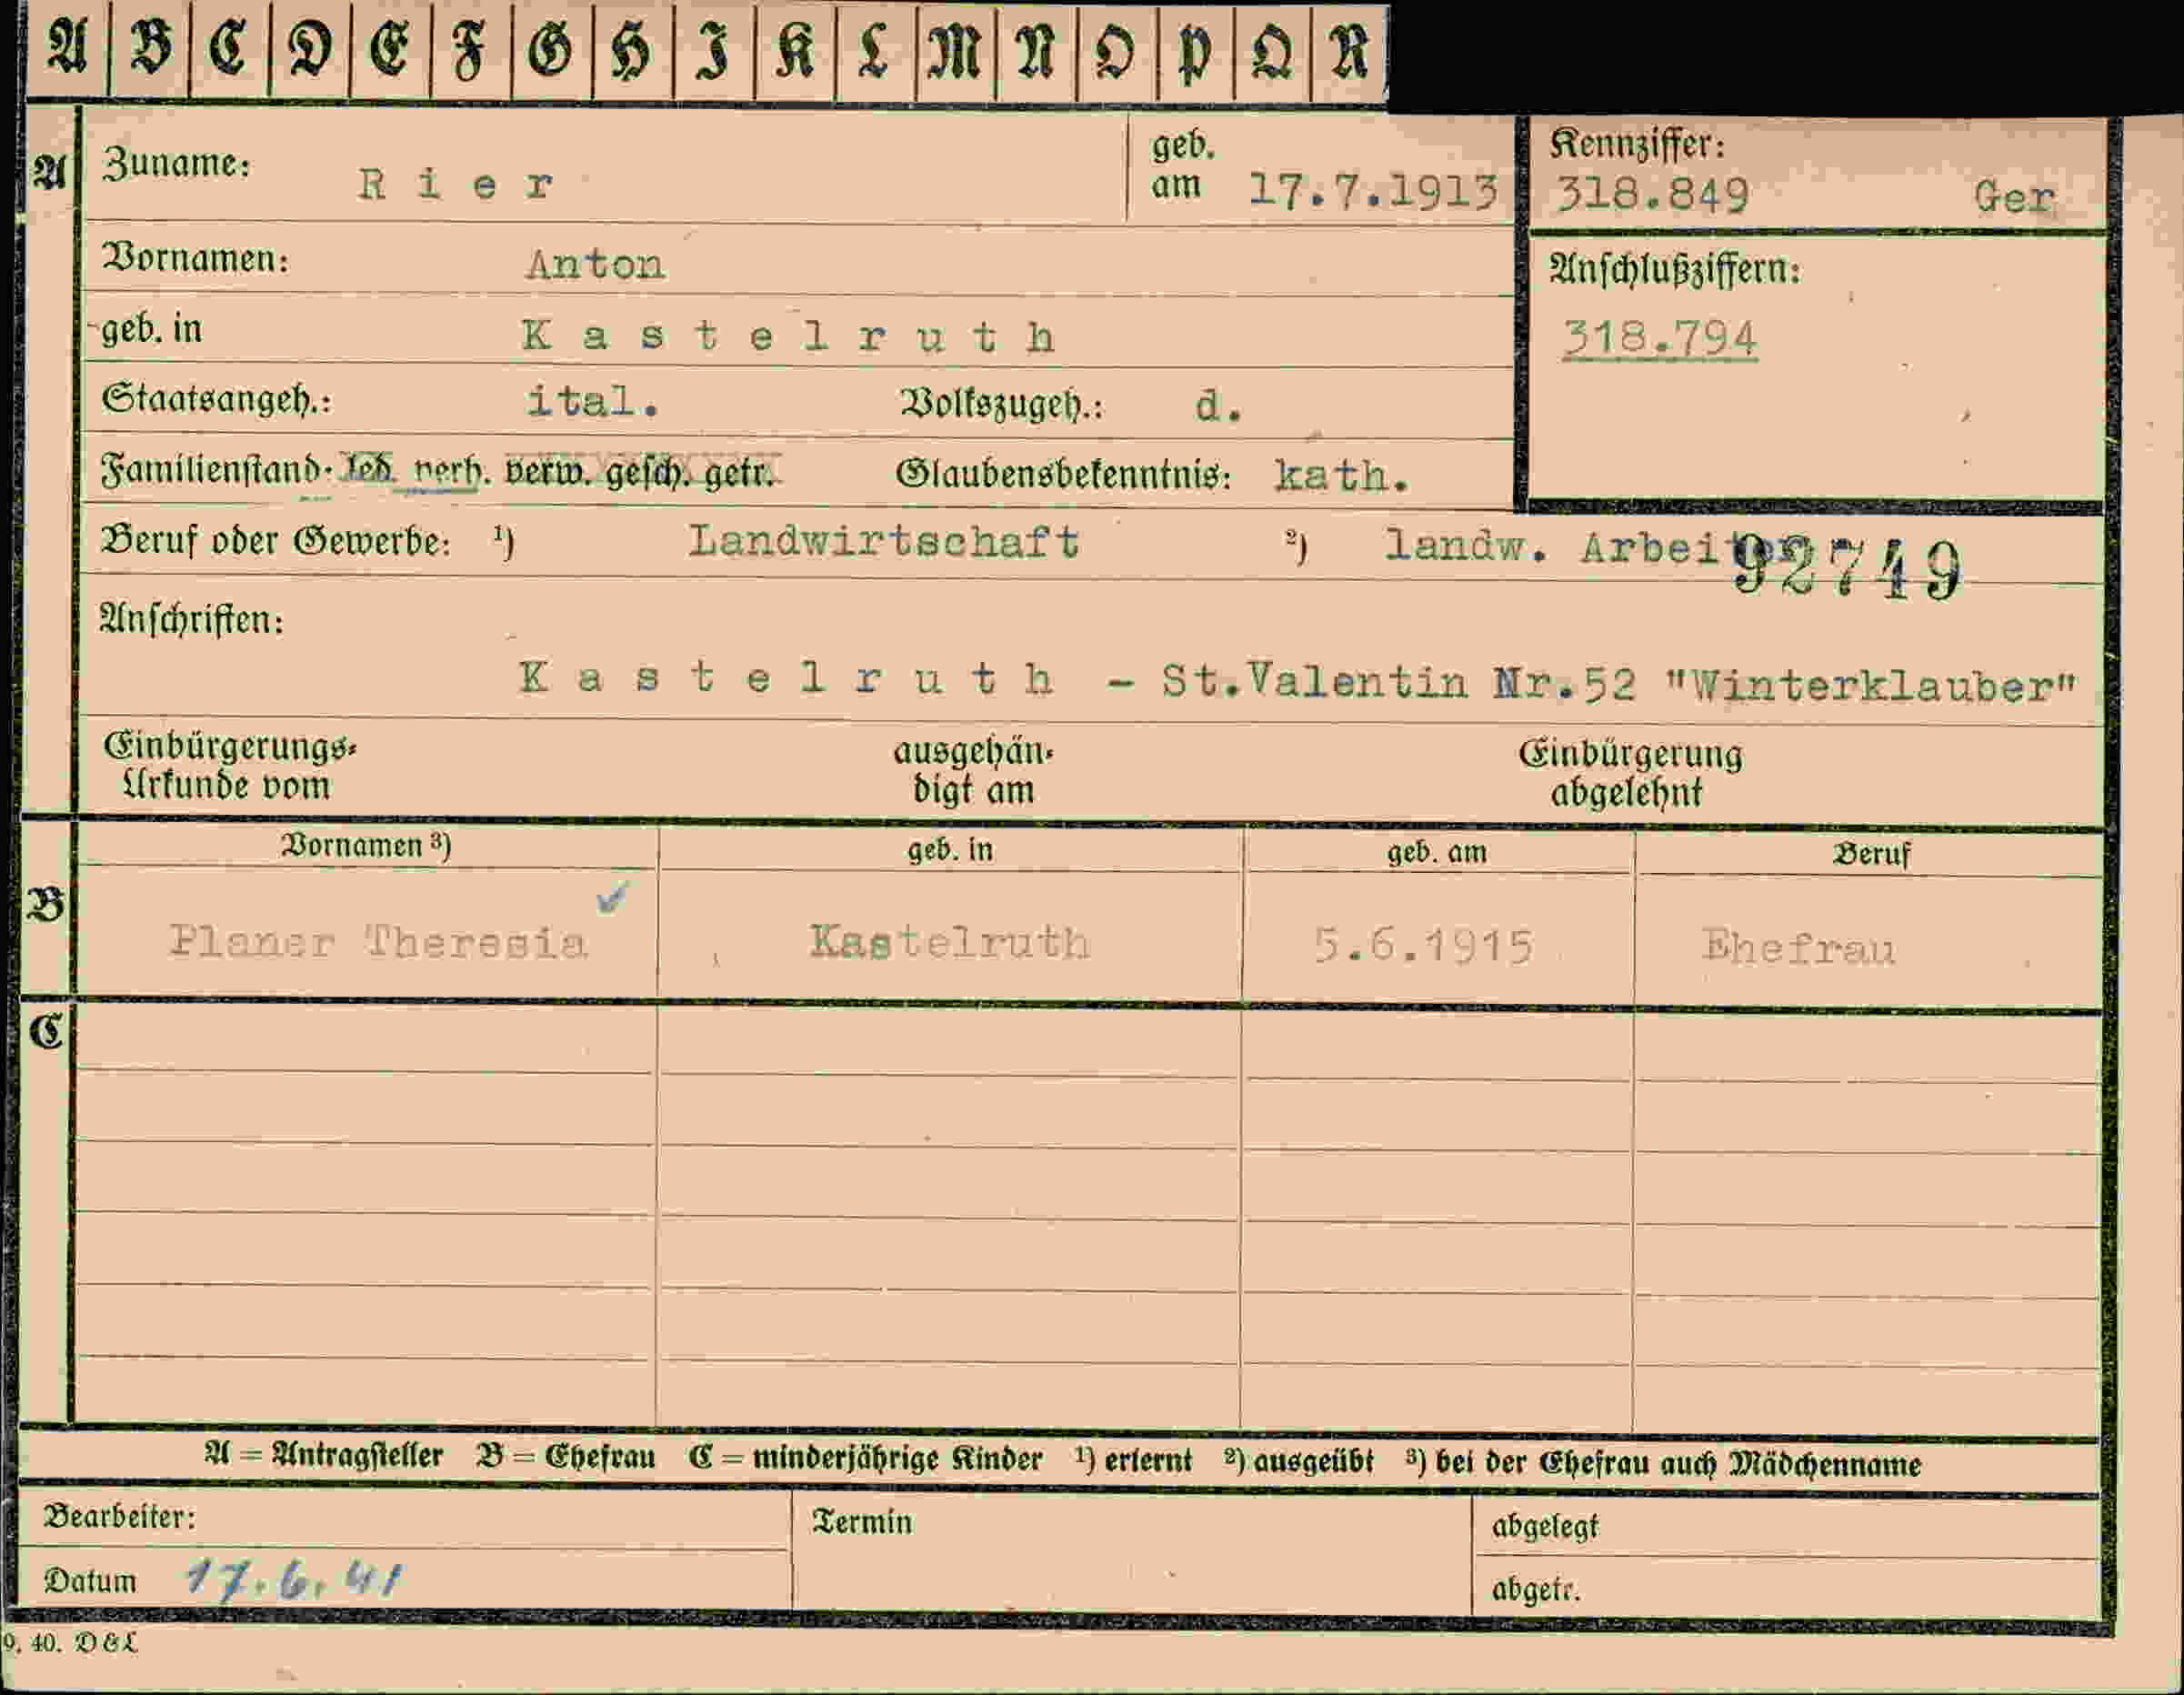 A B C D E F G H I K L M N O P Q R
A Zuname: Rier geb. am 17.7.1913 Kennziffer: 318.849 Ger
Vornamen: Anton Anschlußziffern:
geb. in Kastelruth 318.794
Staatsangeh.: ital. Volkszugeh.: d.
Familienstand: led. verh. verw. gesch. getr. Glaubensbekenntnis: kath.
Beruf oder Gewerbe: 1) Landwirtschaft 2) landw. Arbeiter 92749
Anschriften:
Kastelruth - St.Valentin Nr.52 "Winterklauber"
Einbürgerungs- ausgehän- Einbürgerung
Urkunde vom digt am abgelehnt
Vornamen 3) geb. in geb. am Beruf
B Planer Theresia Kastelruth 5.6.1915 Ehefrau
C
A = Antragsteller B = Ehefrau C = minderjährige Kinder 1) erlernt 2) ausgeübt 3) bei der Ehefrau auch Mädchenname
Bearbeiter: Termin abgelegt
Datum 17.6.41 abgetr.
9. 40. D & L